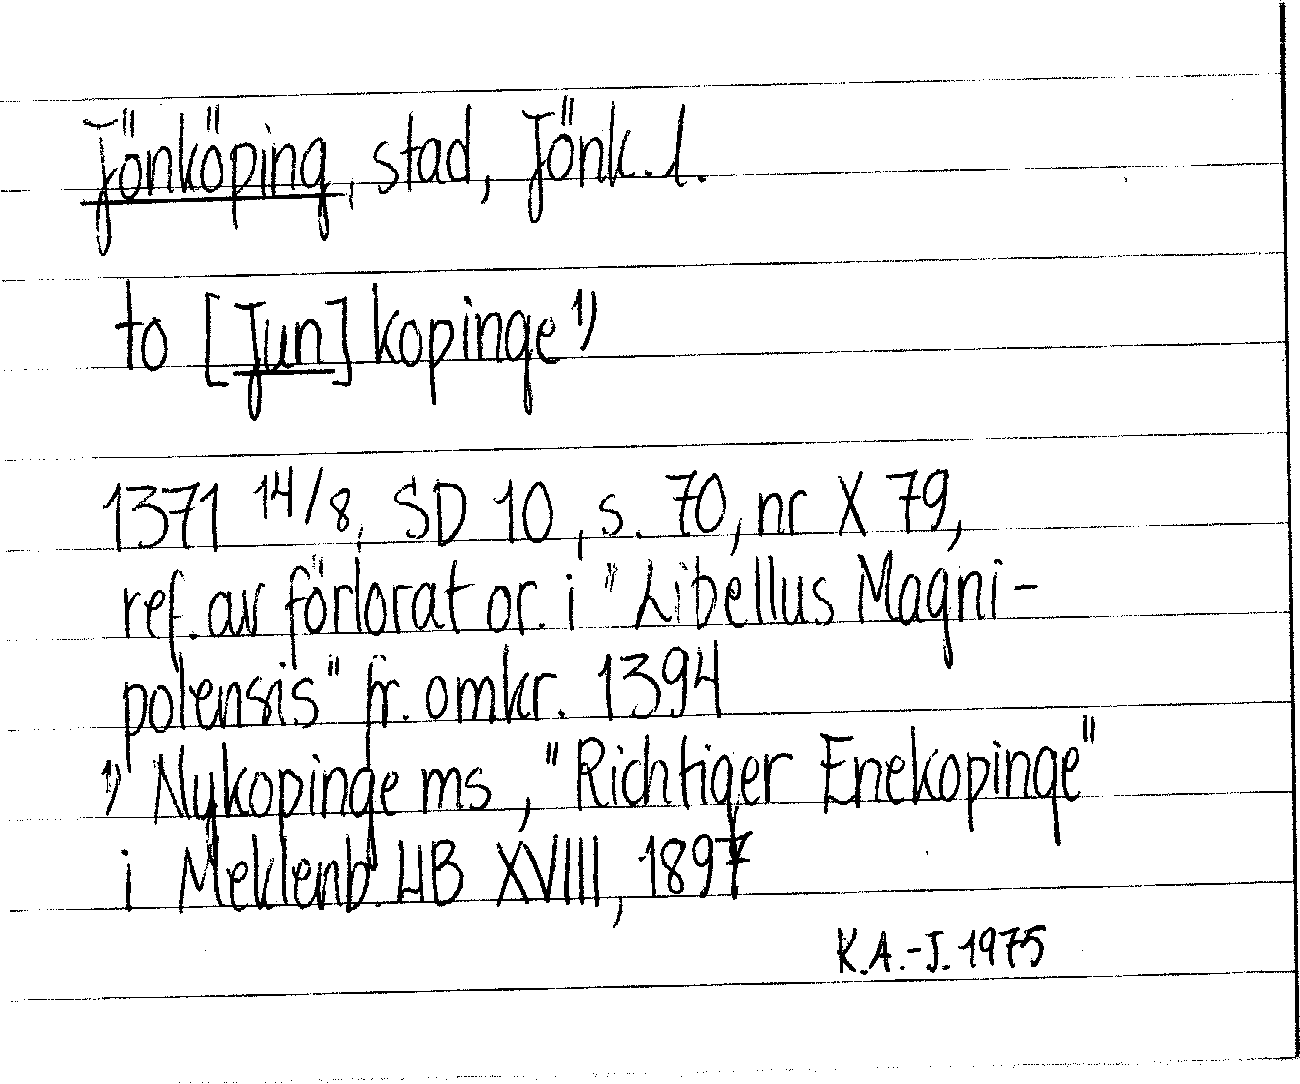 Jönköping, stad, Jönk. l.
to [Jun] kopinge 1)
1371 14/8, SD 10, s. 70, nr X 79,
ref. av förlorat or. i "Libellus Magni-
polensis" fr. omkr. 1394
1) Nykopinge ms, "Richtiger Enekopinge"
i Meklenb. UB XVIII, 1897
K.A.-J. 1975